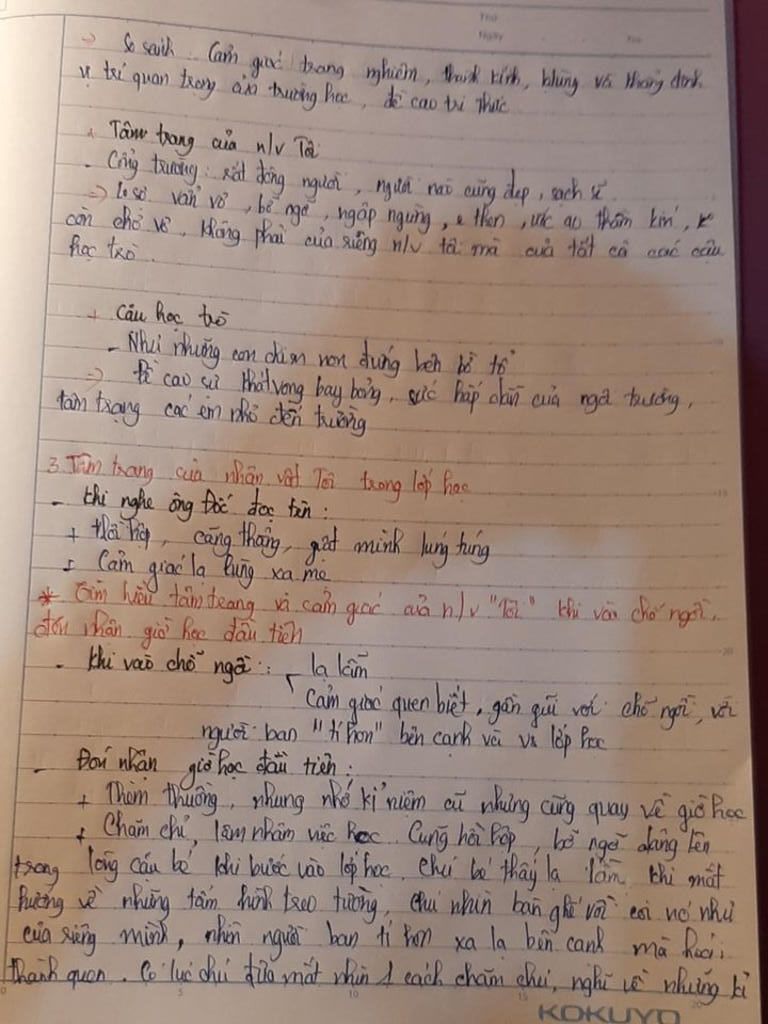 Thứ
Ngày
=> So sánh. Cảm giác trang nghiêm, thành kính, khẳng định
vị trí quan trọng của trường học, đề cao tri thức
+ Tâm trạng của n/v Tôi
- Cổng trường: rất đông người, người nào cũng đẹp, sạch sẽ
=> Lo sợ vẩn vơ, bỡ ngỡ, ngập ngừng, e thẹn, ước ao thầm kín, k
còn chơ vơ, không phải của riêng n/v tôi mà của tất cả các cậu
học trò.
+ Cậu học trò
- Như những con chim non đứng bên bờ tổ
=> Đề cao sự khát vọng bay bổng, sức hấp dẫn của ngôi trường,
tâm trạng các em nhỏ đến trường
3. Tâm trạng của nhân vật Tôi trong lớp học
- Khi nghe ông Đốc đọc tên:
+ Hồi hộp, căng thẳng, giật mình lúng túng
+ Cảm giác lạ lùng xa mẹ
* Tìm hiểu tâm trạng và cảm giác của n/v "Tôi" khi vào chỗ ngồi,
đón nhận giờ học đầu tiên
- Khi vào chỗ ngồi: lạ lẫm
Cảm giác quen biết, gần gũi với chỗ ngồi, với
người bạn "tí hon" bên cạnh và lớp học
- Đón nhận giờ học đầu tiên:
+ Thèm thuồng, nhưng nhớ kỉ niệm cũ nhưng cũng quay về giờ học
+ Chăm chỉ, lẩm nhẩm việc học. Cũng hồi hộp, bỡ ngỡ dâng lên
trong lòng cậu bé khi bước vào lớp học. Chú bé thấy lạ lẫm khi mắt
hướng về những tấm hình treo tường, chú nhìn bàn ghế rồi coi nó như
của riêng mình, nhìn người bạn tí hon xa lạ bên cạnh mà hoá
thành quen. Có lúc chú đưa mắt nhìn 1 cách chăm chú, nghĩ về những kỉ
KOKUYO